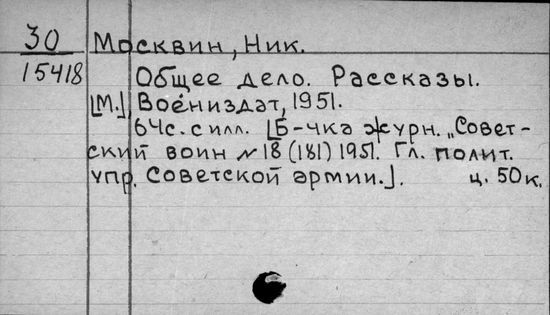 30 Москвин, Ник.
15418 Общее дело. Рассказы.
[М.], Воениздат, 1951.
64с. с илл. [Б-чка журн. „Совет-
ский воин № 18 (181) 1951. Гл. полит.
упр. Советской армии.]. ц. 50к.